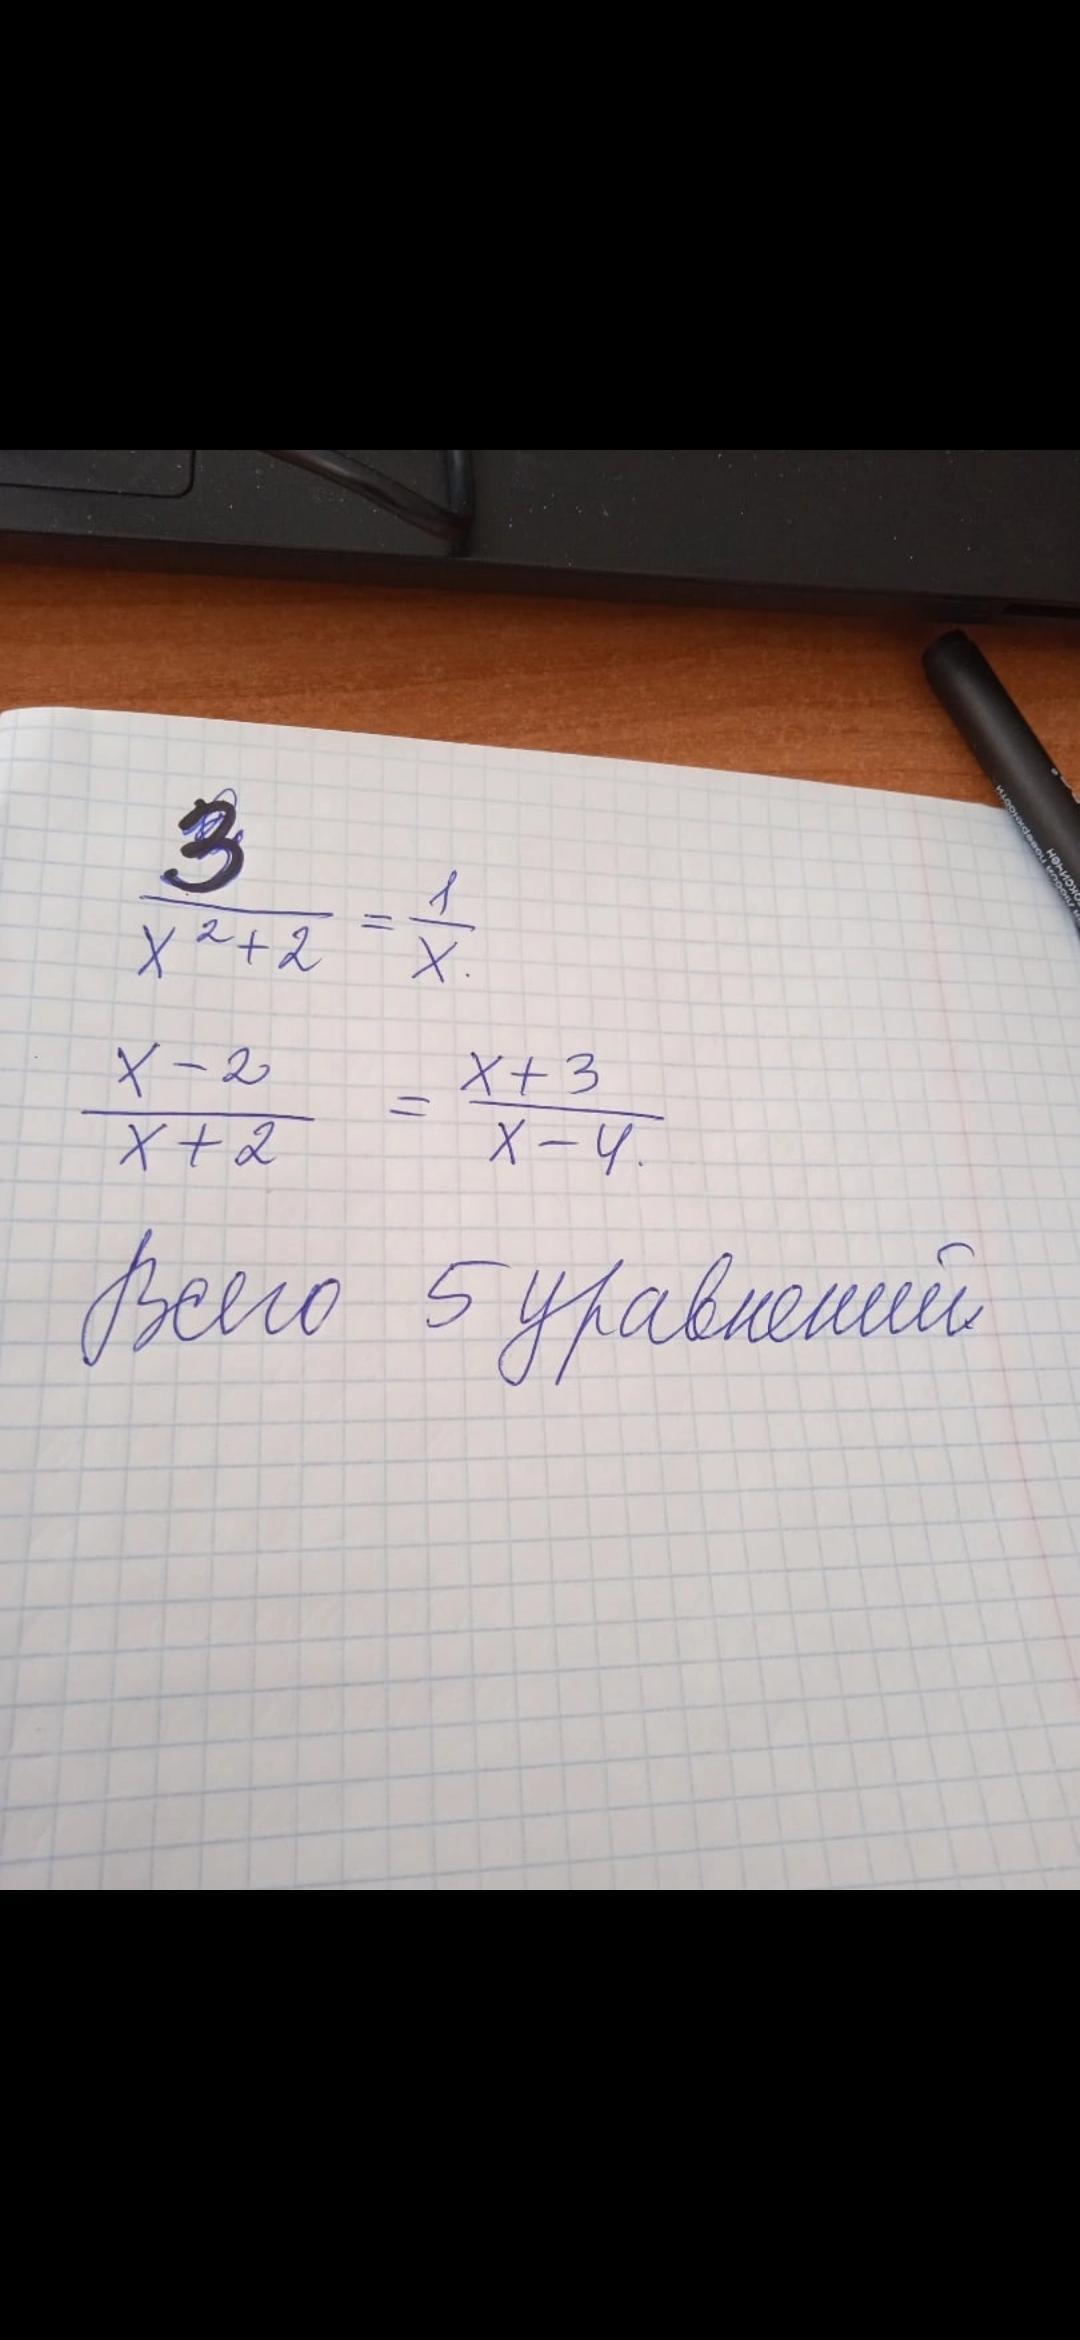 3
x²+2 = 1
x.
x-2 = x+3
x+2 x-4.
Всего 5 уравнений